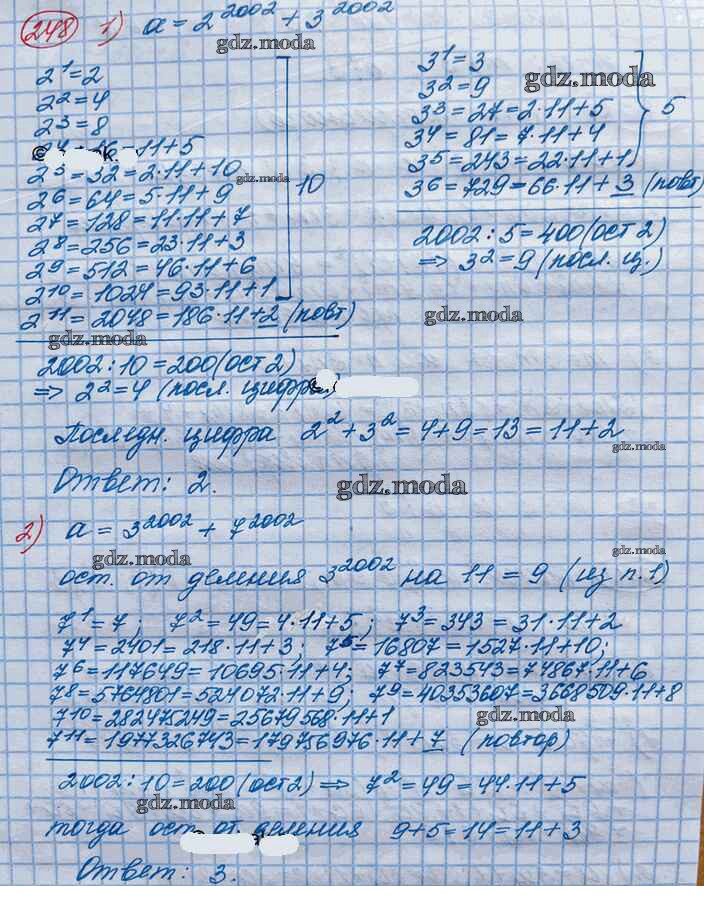 248 1) a = 2^2002 + 3^2002
gdz.moda
2^1 = 2
2^2 = 4
2^3 = 8
11+5
2^5 = 32 = 2·11+10
2^6 = 64 = 5·11+9
2^7 = 128 = 11·11+7
2^8 = 256 = 23·11+3
2^9 = 512 = 46·11+6
2^10 = 1024 = 93·11+1
2^11 = 2048 = 186·11+2 (повт)
10
gdz.moda
gdz.moda
2002:10 = 200 (ост 2)
=> 2^2 = 4 (посл. цифра)
3^1 = 3
3^2 = 9
gdz.moda
3^3 = 27 = 2·11+5
3^4 = 81 = 7·11+4
3^5 = 243 = 22·11+1
5
3^6 = 729 = 66·11+3 (повт)
2002:5 = 400 (ост 2)
=> 3^2 = 9 (посл. ц.)
gdz.moda
Последн. цифра 2^2 + 3^2 = 4+9 = 13 = 11+2
gdz.moda
Ответ: 2.
gdz.moda
2) a = 3^2002 + 7^2002
gdz.moda
gdz.moda
ост. от деления 3^2002 на 11 = 9 (из п. 1)
7^1 = 7; 7^2 = 49 = 4·11+5; 7^3 = 343 = 31·11+2
7^4 = 2401 = 218·11+3; 7^5 = 16807 = 1527·11+10;
7^6 = 117649 = 10695·11+4; 7^7 = 823543 = 74867·11+6
7^8 = 5764801 = 524072·11+9; 7^9 = 40353607 = 3668509·11+8
7^10 = 282475249 = 25679568·11+1
gdz.moda
7^11 = 1977326743 = 179756976·11+7 (повтор)
2002:10 = 200 (ост 2) => 7^2 = 49 = 44·11+5
gdz.moda
тогда ост. от. деления 9+5 = 14 = 11+3
Ответ: 3.